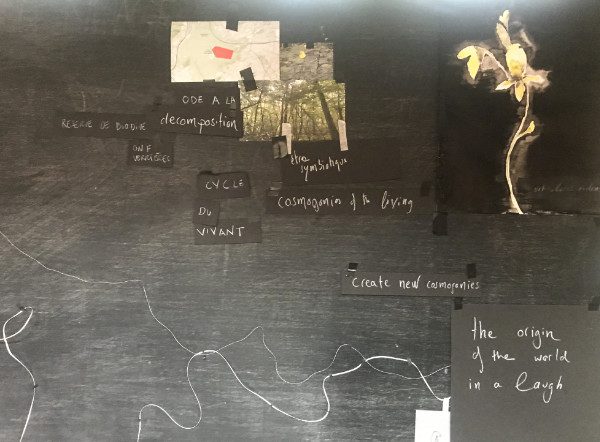 ODE A LA
decomposition
RESERVE DE
ONF
VERRIÈRES
être
symbiotique
CYCLE
DU
VIVANT
cosmogonies of the living
create new cosmogonies
the origin
of the world
in a laugh